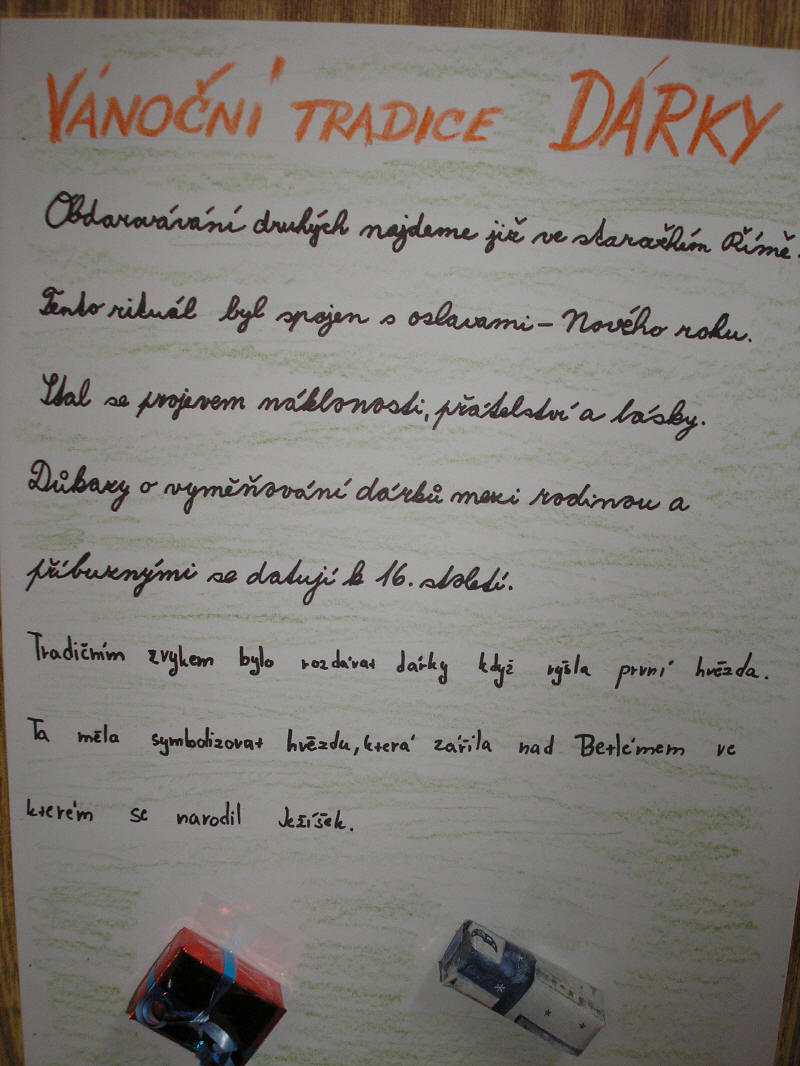 VÁNOČNÍ TRADICE DÁRKY
Obdarovávání druhých najdeme již ve starověkém Římě.
Tento rituál byl spojen s oslavami – Nového roku.
Stal se projevem náklonosti, přátelství a lásky.
Důkazy o vyměňování dárků mezi rodinou a
příbuznými se datují k 16. století.
Tradičním zvykem bylo rozdávat dárky když vyšla první hvězda.
Ta měla symbolizovat hvězdu, která zářila nad Betlémem ve
kterém se narodil Ježíšek.